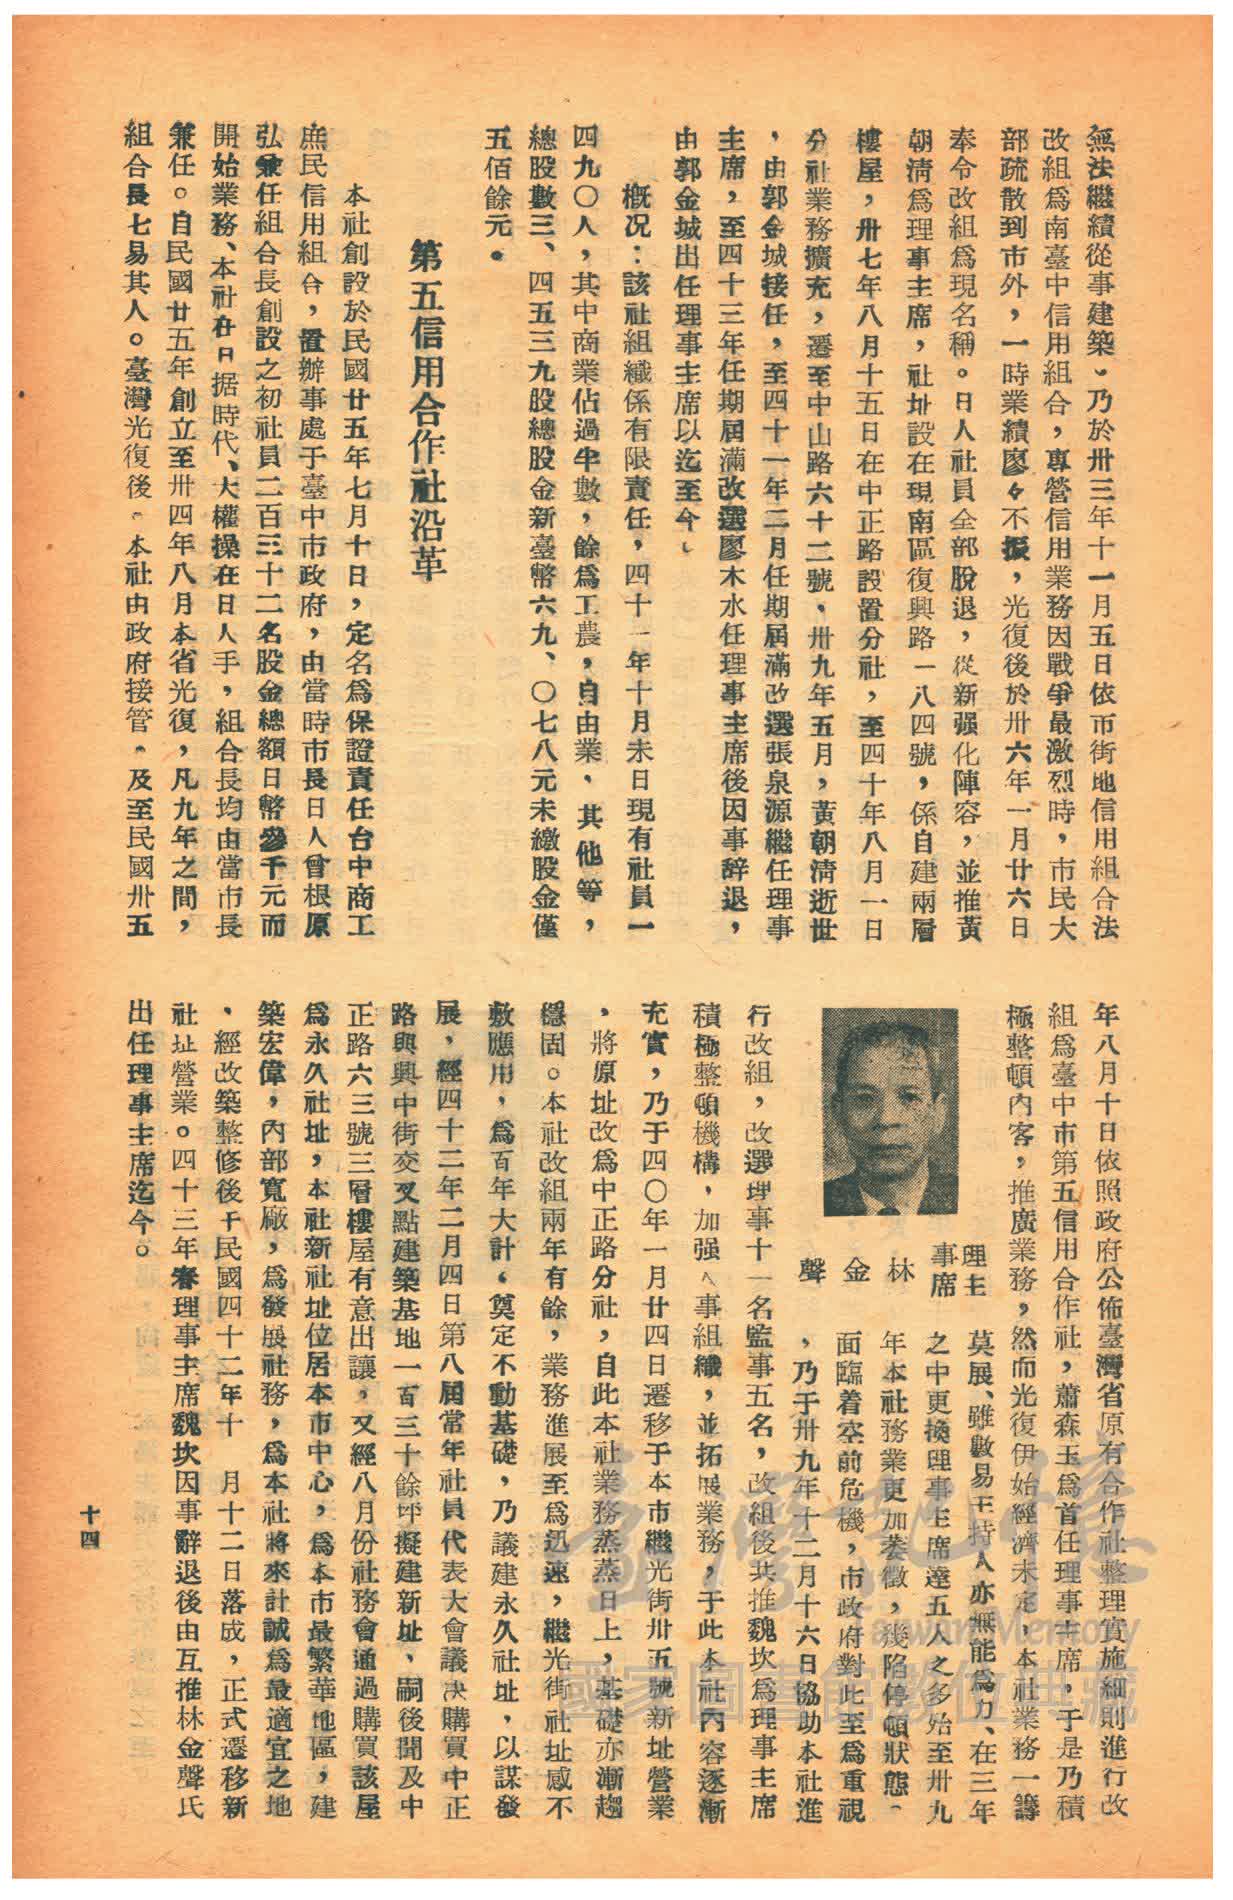 無法繼續從事建築、乃於卅三年十一月五日依市街地信用組合法
改組爲南臺中信用組合，專營信用業務因戰爭最激烈時，市民大
部疏散到市外，一時業績廖々不振，光復後於卅六年一月廿六日
奉令改組爲現名稱。日人社員全部脫退，從新强化陣容，並推黃
朝淸爲理事主席，社址設在現南區復興路一八四號，係自建兩層
樓屋，卅七年八月十五日在中正路設置分社，至四十年八月一日
分社業務擴充，遷至中山路六十二號，卅九年五月，黃朝淸逝世
，由郭金城接任，至四十一年二月任期屆滿改選張泉源繼任理事
主席，至四十三年任期屆滿改選廖木水任理事主席後因事辞退，
由郭金城出任理事主席以迄至今。
概況：該社組織係有限責任，四十一年十月末日現有社員一
四九〇人，其中商業佔過半數，餘爲工農，自由業、其他等，
總股數三、四五三九股總股金新臺幣六九、〇七八元未繳股金僅
五佰餘元。
第五信用合作社沿革
本社創設於民國廿五年七月十日，定名爲保證責任台中商工
庶民信用組合，置辦事處于臺中市政府，由當時市長日人曾根原
弘兼任組合長創設之初社員二百三十二名股金總額日幣參千元而
開始業務、本社在日据時代、大權操在日人手，組合長均由當市長
兼任。自民國廿五年創立至卅四年八月本省光復，凡九年之間，
組合長七易其人。臺灣光復後。本社由政府接管。及至民國卅五
年八月十日依照政府公佈臺灣省原有合作社整理實施細則進行改
組爲臺中市第五信用合作社，蕭森玉爲首任理事主席，于是乃積
極整頓內客，推廣業務，然而光復伊始經濟未定，本社業務一籌
理事主席
林金聲
莫展、雖數易主持人亦無能爲力、在三年
之中更換理事主席達五人之多始至卅九
年本社務業更加萎徵，幾陷停頓狀態。
面臨着空前危機，市政府對此至爲重視
，乃于卅九年十二月十六日協助本社進
行改組，改選理事十一名監事五名，改組後共推魏坎爲理事主席
積極整頓機構，加强人事組織，並拓展業務，于此本社內容逐漸
充實，乃于四〇年一月廿四日遷移于本市繼光街卅五號新址營業
，將原址改爲中正路分社，自此本社業務蒸蒸日上，基礎亦漸趨
穩固。本社改組兩年有餘，業務進展至爲迅速，繼光街社址感不
敷應用，爲百年大計，奠定不動基礎，乃議建永久社址，以謀發
展，經四十二年二月四日第八屆常年社員代表大會議決購買中正
路與興中街交叉點建築基地一百三十餘坪擬建新址、嗣後聞及中
正路六三號三層樓屋有意出讓，又經八月份社務會通過購買該屋
爲永久社址，本社新社址位居本市中心，爲本市最繁華地區，建
築宏偉，內部寬廠，爲發展社務，爲本社將來計誠爲最適宜之地
、經改築整修後于民國四十二年十　月十二日落成，正式遷移新
社址營業。四十三年春理事主席魏坎因事辭退後由互推林金聲氏
出任理事主席迄今。
十四
臺灣記憶
Taiwan Memory
國家圖書館數位典藏